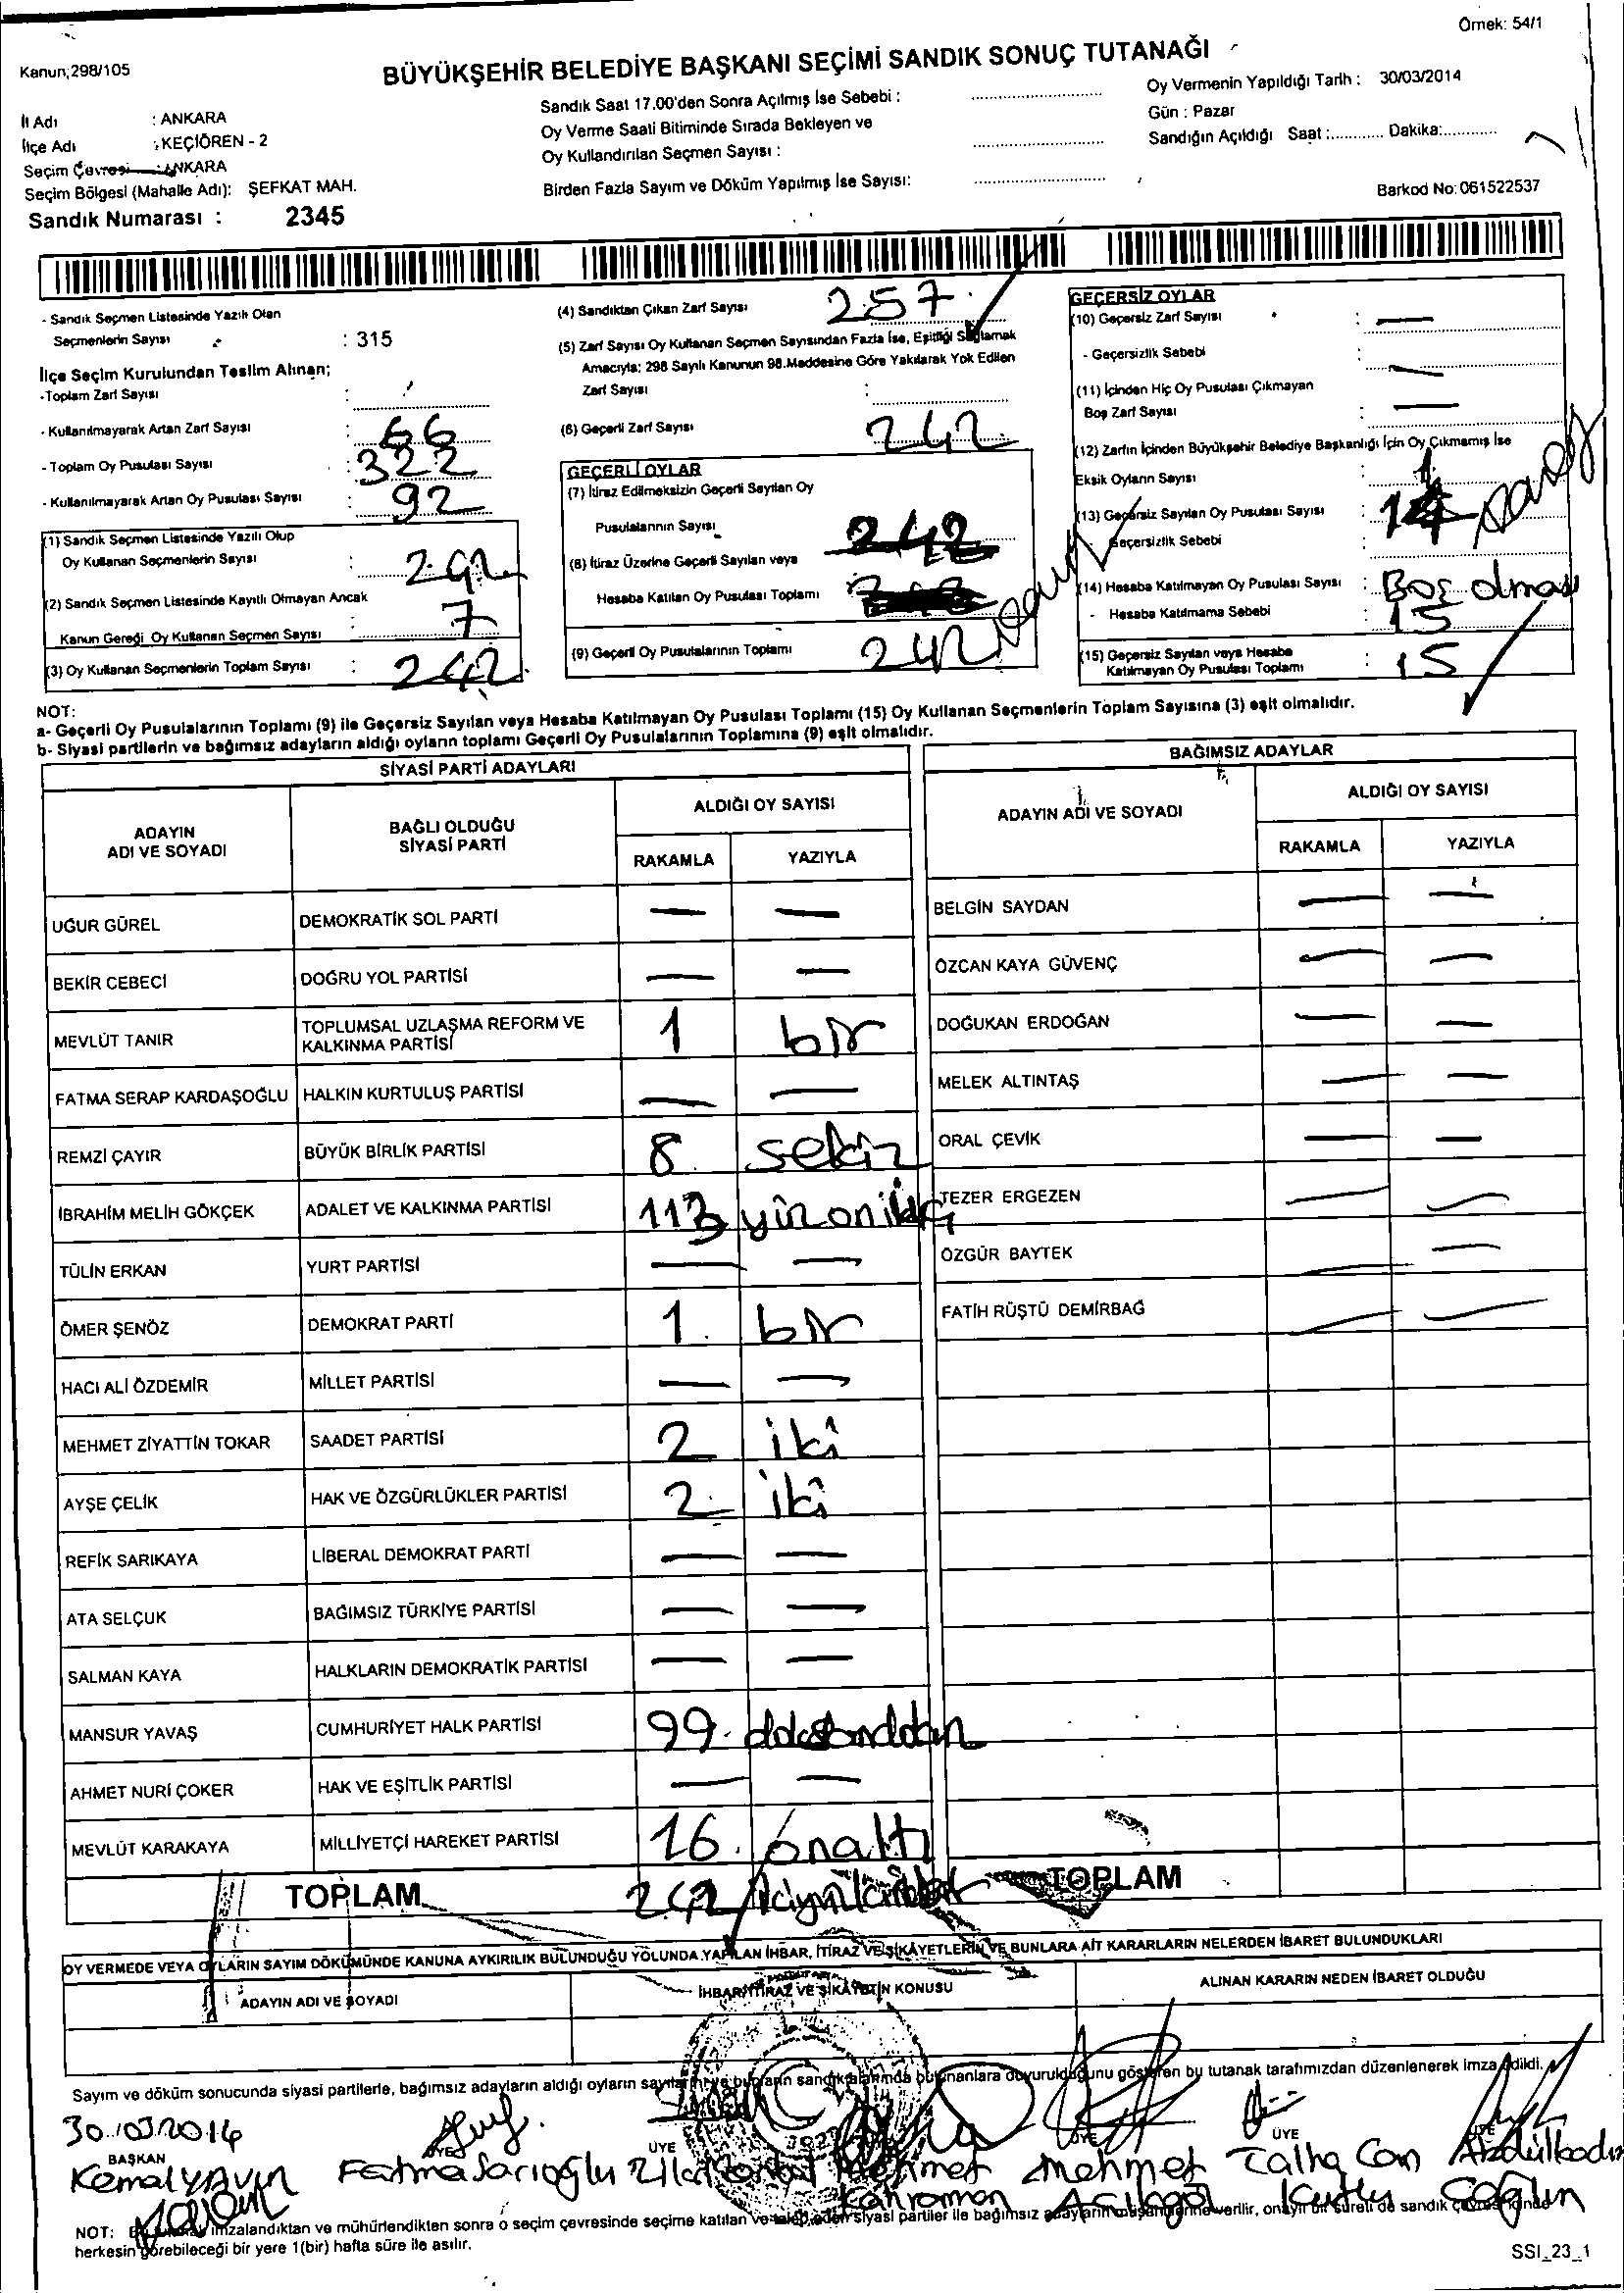 Örnek: 54/1
Kanun;298/105
BÜYÜKŞEHİR BELEDİYE BAŞKANI SEÇİMİ SANDIK SONUÇ TUTANAĞI
İl Adı : ANKARA
İlçe Adı : KEÇİÖREN - 2
Seçim Çevresi : ANKARA
Seçim Bölgesi (Mahalle Adı): ŞEFKAT MAH.
Sandık Numarası : 2345
Sandık Saat 17.00'den Sonra Açılmış İse Sebebi :
Oy Verme Saati Bitiminde Sırada Bekleyen ve
Oy Kullandırılan Seçmen Sayısı :
Birden Fazla Sayım ve Döküm Yapılmış İse Sayısı:
Oy Vermenin Yapıldığı Tarih : 30/03/2014
Gün : Pazar
Sandığın Açıldığı Saat :............ Dakika:...........
Barkod No: 061522537
- Sandık Seçmen Listesinde Yazılı Olan
Seçmenlerin Sayısı : 315
İlçe Seçim Kurulundan Teslim Alınan;
-Toplam Zarf Sayısı :
- Kullanılmayarak Artan Zarf Sayısı : 66
- Toplam Oy Pusulası Sayısı : 322
- Kullanılmayarak Artan Oy Pusulası Sayısı : 92
(1) Sandık Seçmen Listesinde Yazılı Olup
Oy Kullanan Seçmenlerin Sayısı : 242
(2) Sandık Seçmen Listesinde Kayıtlı Olmayan Ancak
Kanun Gereği Oy Kullanan Seçmen Sayısı : 7
(3) Oy Kullanan Seçmenlerin Toplam Sayısı : 242
(4) Sandıktan Çıkan Zarf Sayısı 257
(5) Zarf Sayısı Oy Kullanan Seçmen Sayısından Fazla İse, Eşitliği Sağlamak
Amacıyla; 298 Sayılı Kanunun 98.Maddesine Göre Yakılarak Yok Edilen
Zarf Sayısı :
(6) Geçerli Zarf Sayısı 242
GEÇERLİ OYLAR
(7) İtiraz Edilmeksizin Geçerli Sayılan Oy
Pusulalarının Sayısı 242
(8) İtiraz Üzerine Geçerli Sayılan veya
Hesaba Katılan Oy Pusulası Toplamı
(9) Geçerli Oy Pusulalarının Toplamı 242
GEÇERSİZ OYLAR
(10) Geçersiz Zarf Sayısı : —
- Geçersizlik Sebebi : —
(11) İçinden Hiç Oy Pusulası Çıkmayan
Boş Zarf Sayısı : —
(12) Zarfın İçinden Büyükşehir Belediye Başkanlığı İçin Oy Çıkmamış İse
Eksik Oyların Sayısı : 1
(13) Geçersiz Sayılan Oy Pusulası Sayısı : 14
- Geçersizlik Sebebi :
(14) Hesaba Katılmayan Oy Pusulası Sayısı : Boş olması
- Hesaba Katılmama Sebebi : 15
(15) Geçersiz Sayılan veya Hesaba
Katılmayan Oy Pusulası Toplamı : 15
NOT:
a- Geçerli Oy Pusulalarının Toplamı (9) ile Geçersiz Sayılan veya Hesaba Katılmayan Oy Pusulası Toplamı (15) Oy Kullanan Seçmenlerin Toplam Sayısına (3) eşit olmalıdır.
b- Siyasi partilerin ve bağımsız adayların aldığı oyların toplamı Geçerli Oy Pusulalarının Toplamına (9) eşit olmalıdır.
SİYASİ PARTİ ADAYLARI
ADAYIN ADI VE SOYADI BAĞLI OLDUĞU SİYASİ PARTİ ALDIĞI OY SAYISI
RAKAMLA YAZIYLA
UĞUR GÜREL DEMOKRATİK SOL PARTİ — —
BEKİR CEBECİ DOĞRU YOL PARTİSİ — —
MEVLÜT TANIR TOPLUMSAL UZLAŞMA REFORM VE KALKINMA PARTİSİ 1 bir
FATMA SERAP KARDAŞOĞLU HALKIN KURTULUŞ PARTİSİ — —
REMZİ ÇAYIR BÜYÜK BİRLİK PARTİSİ 8 sekiz
İBRAHİM MELİH GÖKÇEK ADALET VE KALKINMA PARTİSİ 113
TÜLİN ERKAN YURT PARTİSİ — —
ÖMER ŞENÖZ DEMOKRAT PARTİ 1 bir
HACI ALİ ÖZDEMİR MİLLET PARTİSİ — —
MEHMET ZİYATTİN TOKAR SAADET PARTİSİ 2 iki
AYŞE ÇELİK HAK VE ÖZGÜRLÜKLER PARTİSİ 2 iki
REFİK SARIKAYA LİBERAL DEMOKRAT PARTİ — —
ATA SELÇUK BAĞIMSIZ TÜRKİYE PARTİSİ — —
SALMAN KAYA HALKLARIN DEMOKRATİK PARTİSİ — —
MANSUR YAVAŞ CUMHURİYET HALK PARTİSİ 99
AHMET NURİ ÇOKER HAK VE EŞİTLİK PARTİSİ — —
MEVLÜT KARAKAYA MİLLİYETÇİ HAREKET PARTİSİ 16 onaltı
TOPLAM 242
BAĞIMSIZ ADAYLAR
ADAYIN ADI VE SOYADI ALDIĞI OY SAYISI
RAKAMLA YAZIYLA
BELGİN SAYDAN — —
ÖZCAN KAYA GÜVENÇ — —
DOĞUKAN ERDOĞAN — —
MELEK ALTINTAŞ — —
ORAL ÇEVİK — —
TEZER ERGEZEN — —
ÖZGÜR BAYTEK — —
FATİH RÜŞTÜ DEMİRBAĞ — —
TOPLAM
OY VERMEDE VEYA OYLARIN SAYIM DÖKÜMÜNDE KANUNA AYKIRILIK BULUNDUĞU YOLUNDA YAPILAN İHBAR, İTİRAZ VE ŞİKAYETLERİN VE BUNLARA AİT KARARLARIN NELERDEN İBARET BULUNDUKLARI
ADAYIN ADI VE SOYADI İHBAR/İTİRAZ VE ŞİKAYETİN KONUSU ALINAN KARARIN NEDEN İBARET OLDUĞU
Sayım ve döküm sonucunda siyasi partilerle, bağımsız adayların aldığı oyların sayılarını ve bunların sandık alanında bulunanlara duyurulduğunu gösteren bu tutanak tarafımızdan düzenlenerek imza edildi.
30.03.2014
BAŞKAN ÜYE ÜYE ÜYE ÜYE ÜYE
Kemal YAVUN Fatma Sarıoğlu Mehmet Kahraman Mehmet Açıkgöl Talha Can Kutlu Abdülkadir
NOT: Bu tutanak imzalandıktan ve mühürlendikten sonra o seçim çevresinde seçime katılan ve talep eden siyasi partiler ile bağımsız adayların müşahitlerine verilir, onaylı bir sureti de sandık çevresinde
herkesin görebileceği bir yere 1(bir) hafta süre ile asılır.
SSI_23_1